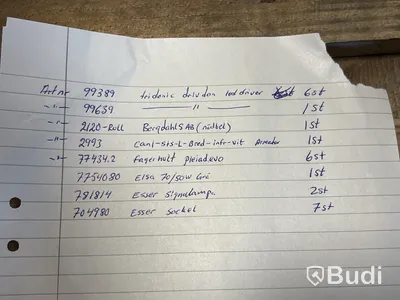 Art nr 99389 tridonic drivdon led driver 6st
-"- 99639 -"- 1st
-"- 2120-Rull Bergdahls AB (nödbel) 1st
-"- 2993 Cani-sts-L-Bred-infr-vit Armatur 1st
-"- 77434.2 Fagerhult pleiad evo 6st
7754080 Elsa 70/50W Grå 1st
781814 Esser Signallampa 2st
704980 Esser Sockel 7st
Budi